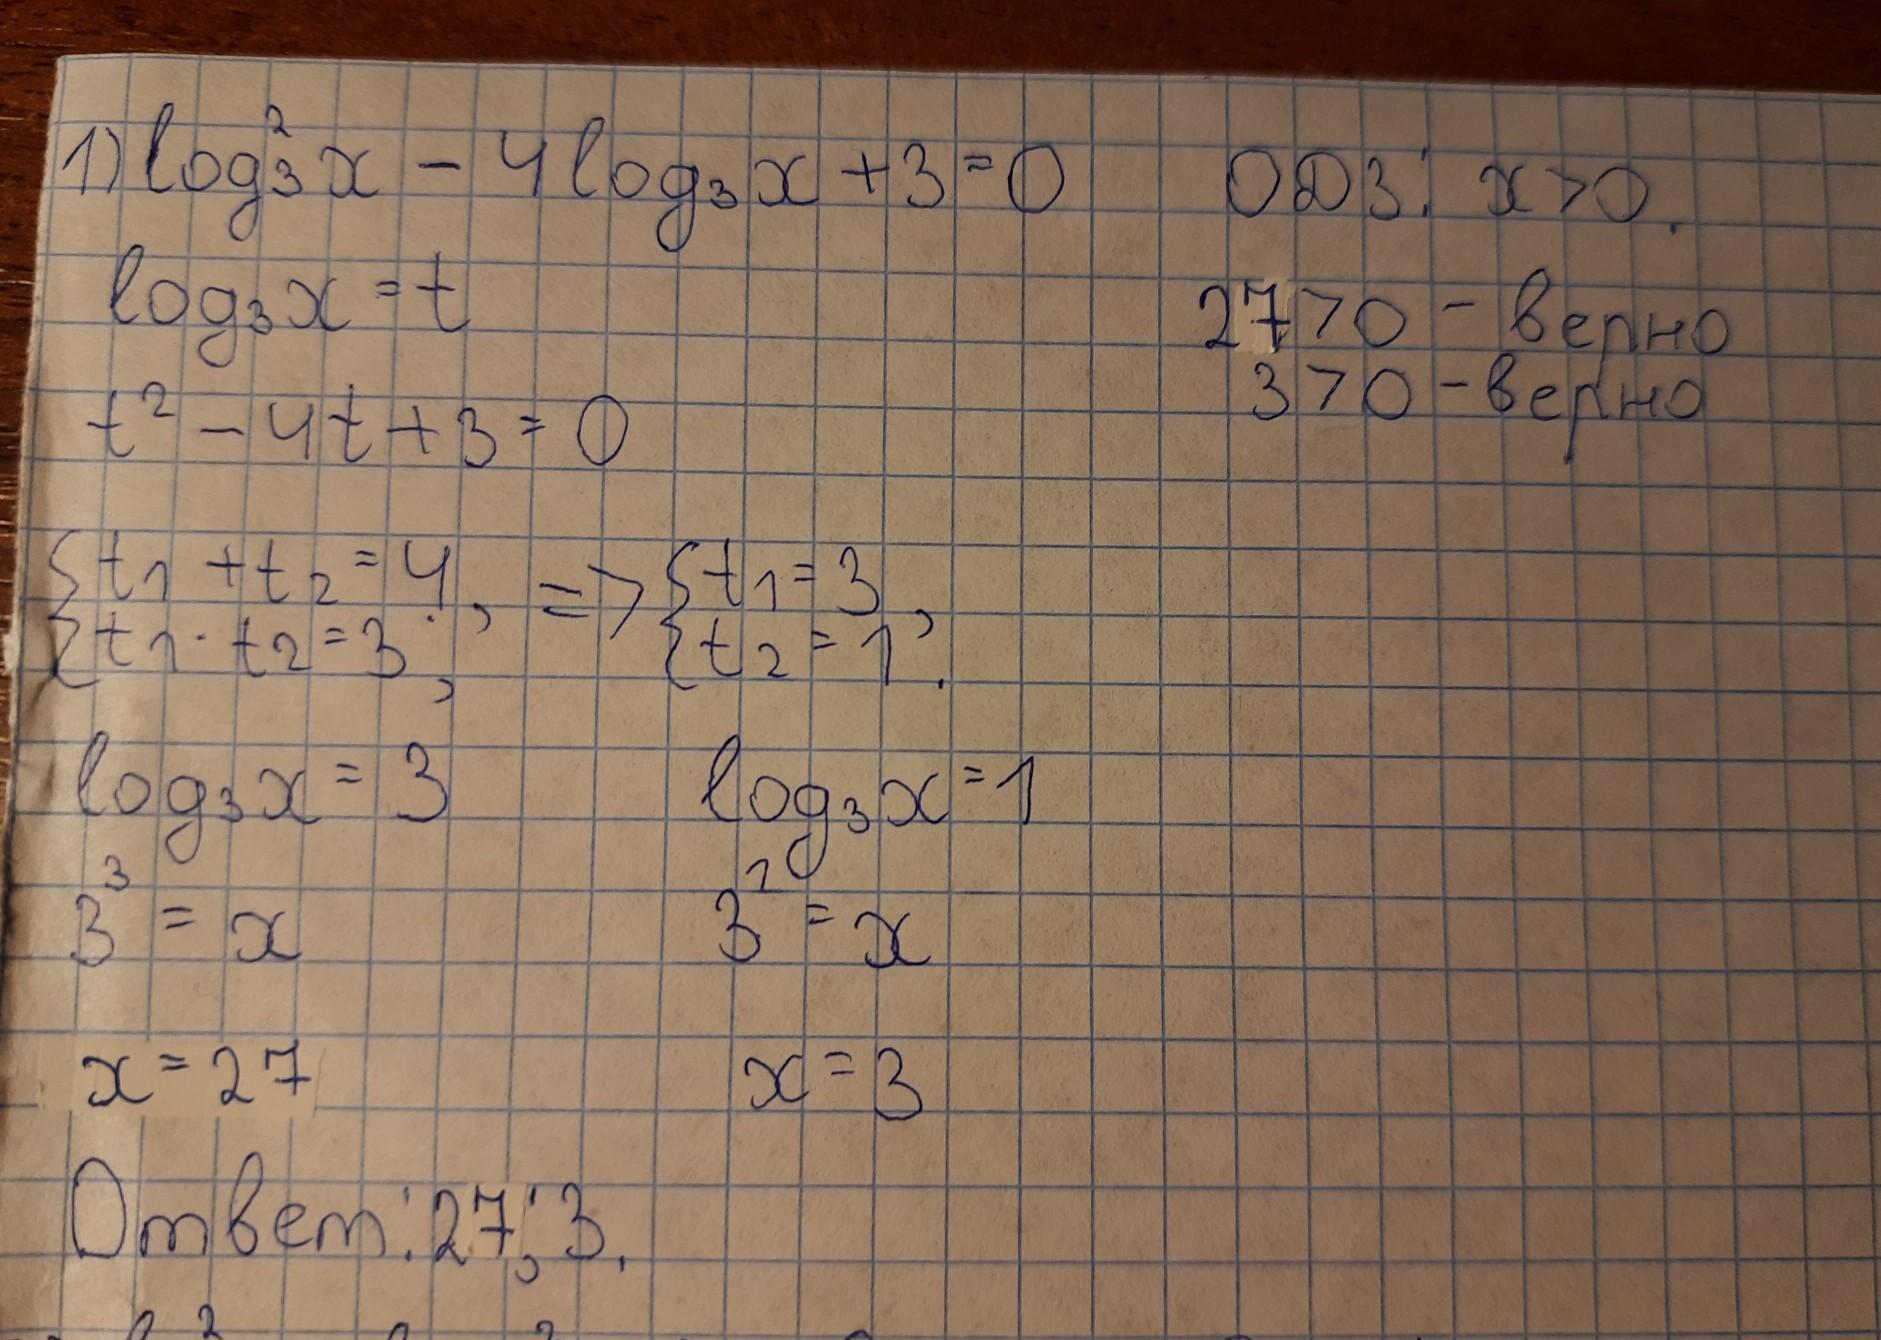 1) log₃²x - 4log₃x + 3 = 0 ОДЗ: x > 0.
log₃x = t
27 > 0 - верно
t² - 4t + 3 = 0
3 > 0 - верно
{t₁ + t₂ = 4, => {t₁ = 3,
{t₁ · t₂ = 3, {t₂ = 1.
log₃x = 3 log₃x = 1
3³ = x 3¹ = x
x = 27 x = 3
Ответ: 27; 3.